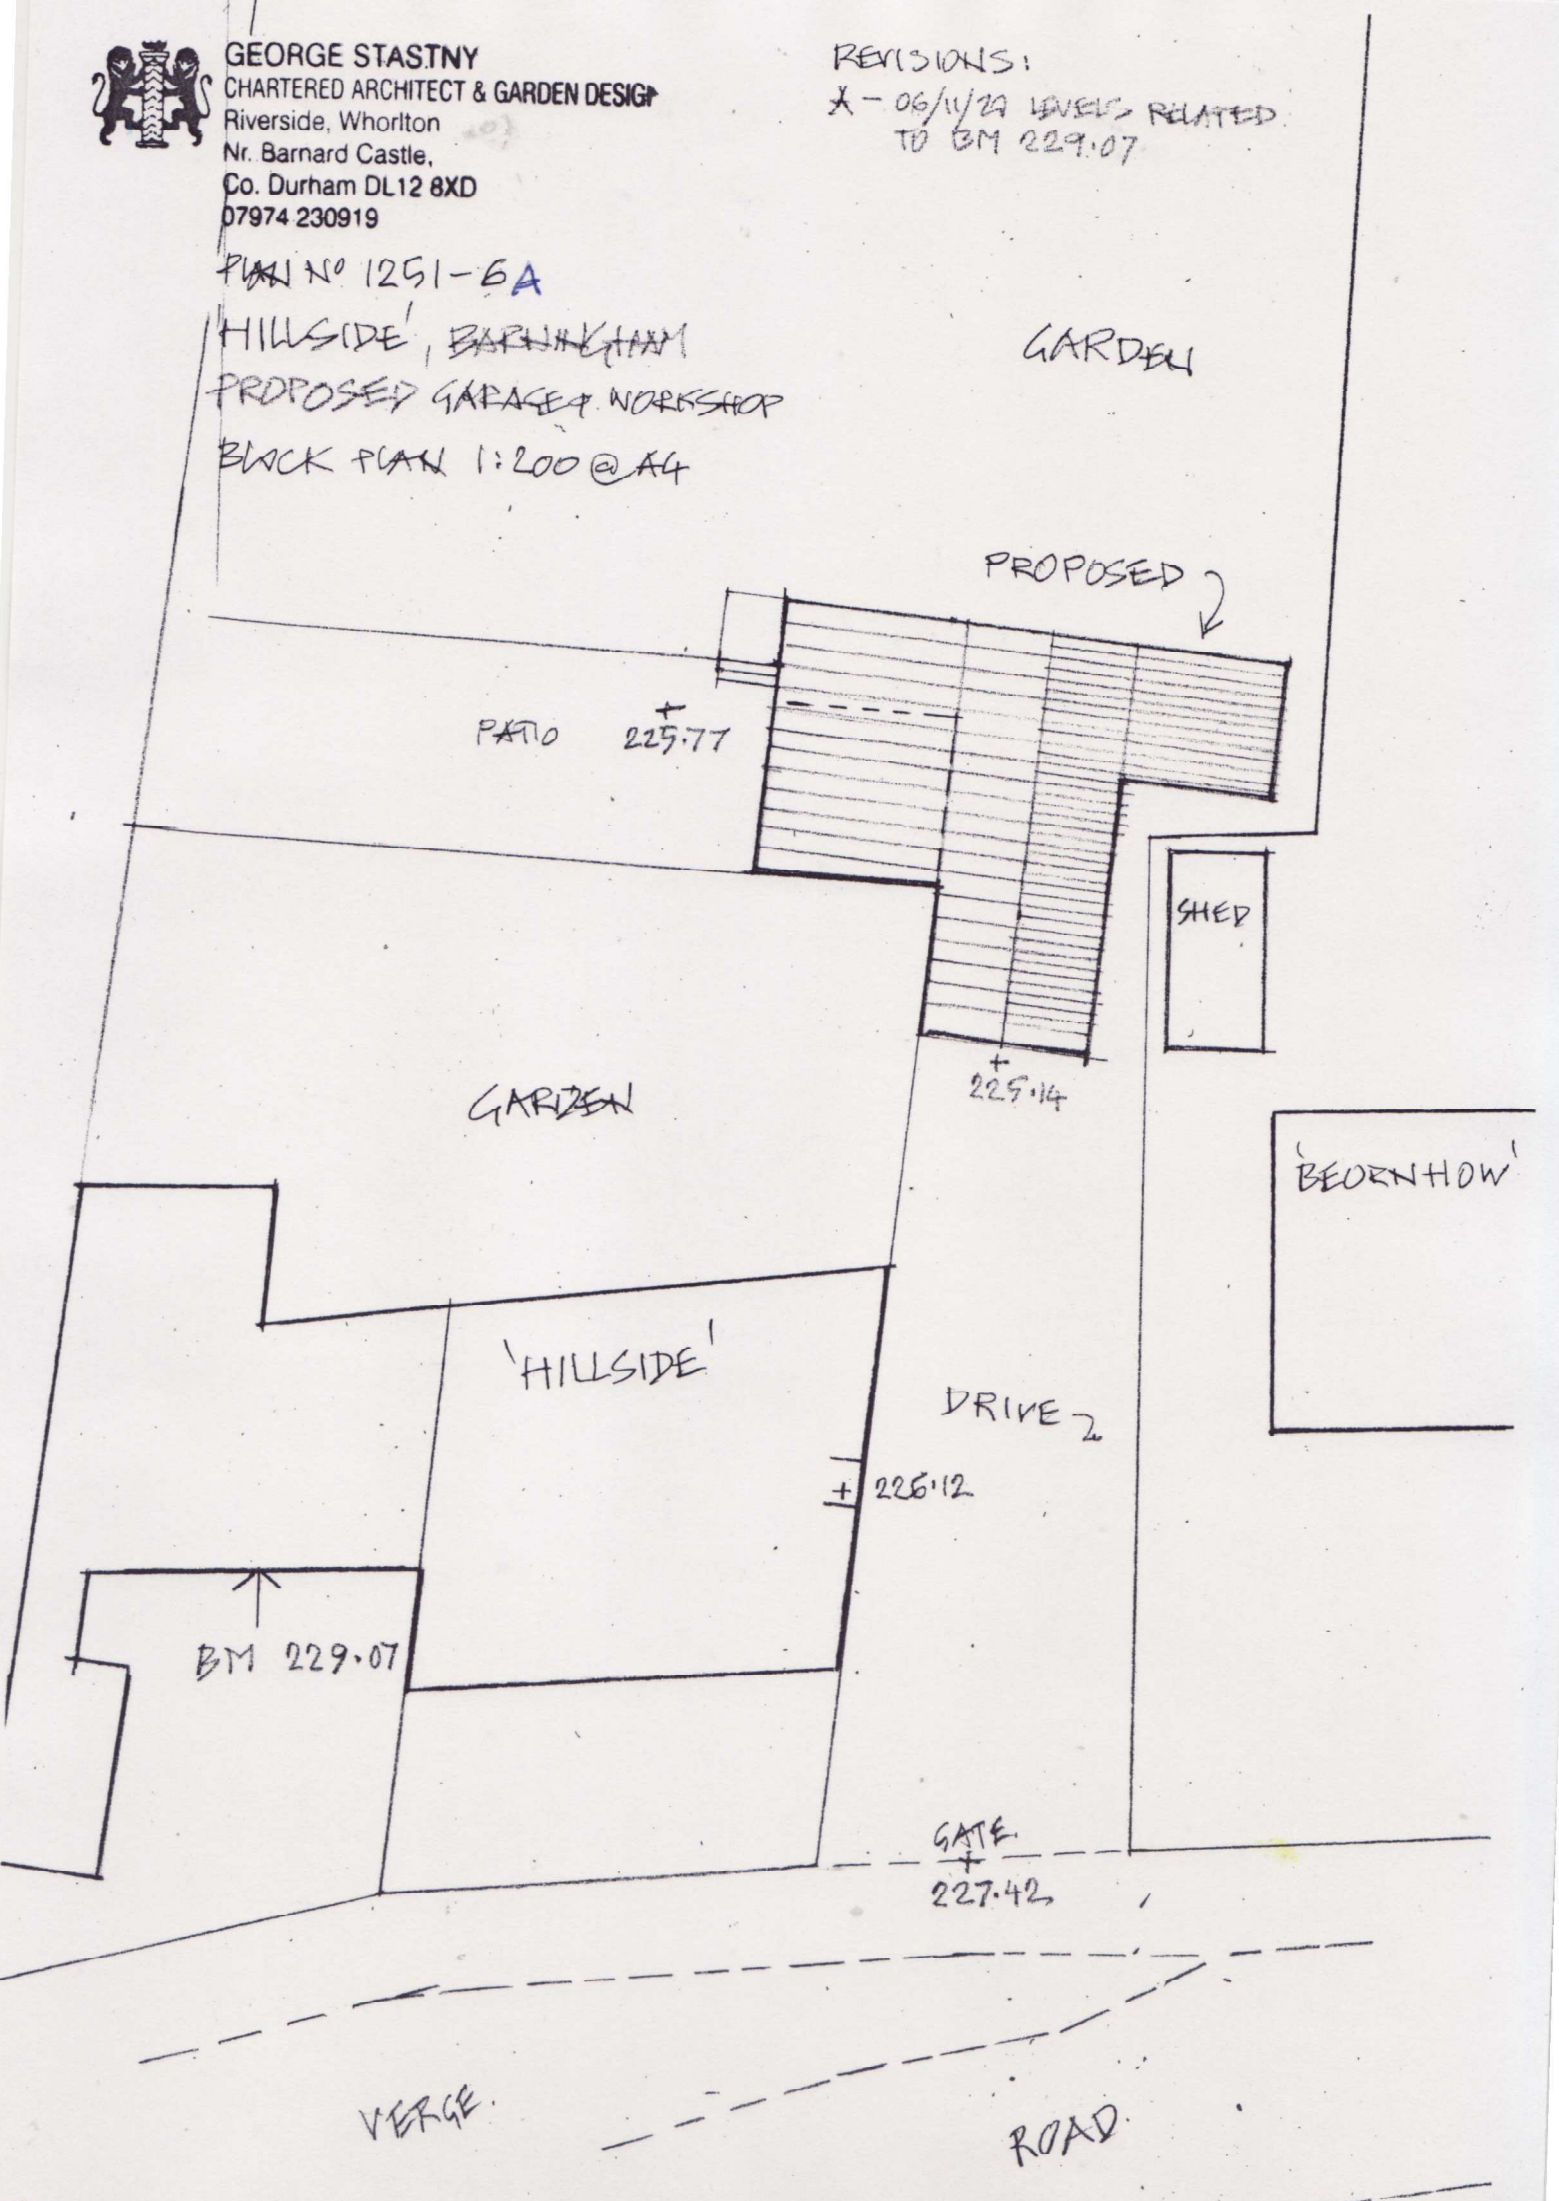 GEORGE STASTNY
CHARTERED ARCHITECT & GARDEN DESIGN
Riverside, Whorlton
Nr. Barnard Castle,
Co. Durham DL12 8XD
07974 230919
PLAN Nº 1251-6A
'HILLSIDE', BARNINGHAM
PROPOSED GARAGE & WORKSHOP
BLOCK PLAN 1:200 @ A4
REVISIONS:
A - 06/11/ LEVELS RELATED
TO BM 229.07
GARDEN
PROPOSED
PATIO
225.77
SHED
225.14
GARDEN
'BEORNHOW'
'HILLSIDE'
DRIVE
226.12
BM 229.07
GATE
227.42
VERGE.
ROAD.